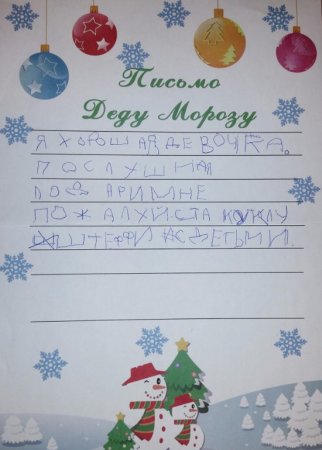 Письмо
Деду Морозу
Я ХОРОШАЯ ДЕВОЧКА.
ПОСЛУШНАЯ
ПОДАРИ МНЕ
ПОЖАЛУЙСТА КУКЛУ
ШТЕФФИ С ДЕТЬМИ.